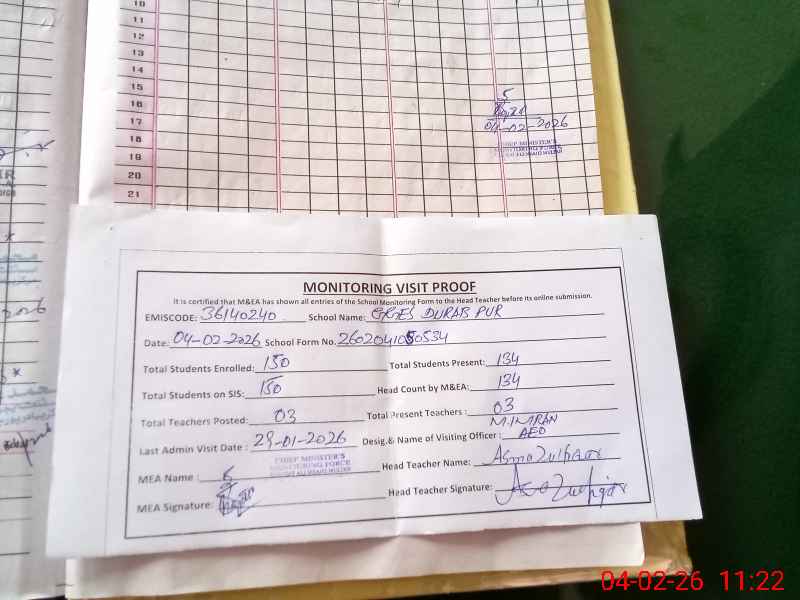 10
11
12
13
14
15
16
17
18
19
20
21
5
04-02-2026
CHIEF MINISTER'S
MONITORING FORCE
MONITORING VISIT PROOF
It is certified that M&EA has shown all entries of the School Monitoring Form to the Head Teacher before its online submission.
EMISCODE: 36140240 School Name: GGES DURAB PUR
Date: 04-02-2026 School Form No. 2602041050534
Total Students Enrolled: 150 Total Students Present: 134
Total Students on SIS: 150 Head Count by M&EA: 134
Total Teachers Posted: 03 Total Present Teachers : 03
Last Admin Visit Date : 29-01-2026 Desig.& Name of Visiting Officer : M.IMRAN AEO
CHIEF MINISTER'S
MONITORING FORCE
MEA Name : Head Teacher Name: Asma Zulfqar
MEA Signature: Head Teacher Signature:
04-02-26 11:22